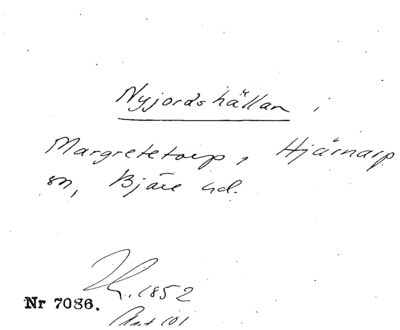 Nyjordshällan i
Margretetorp, Hjärnarp
sn, Bjäre hd.
1852
Nr 7086.